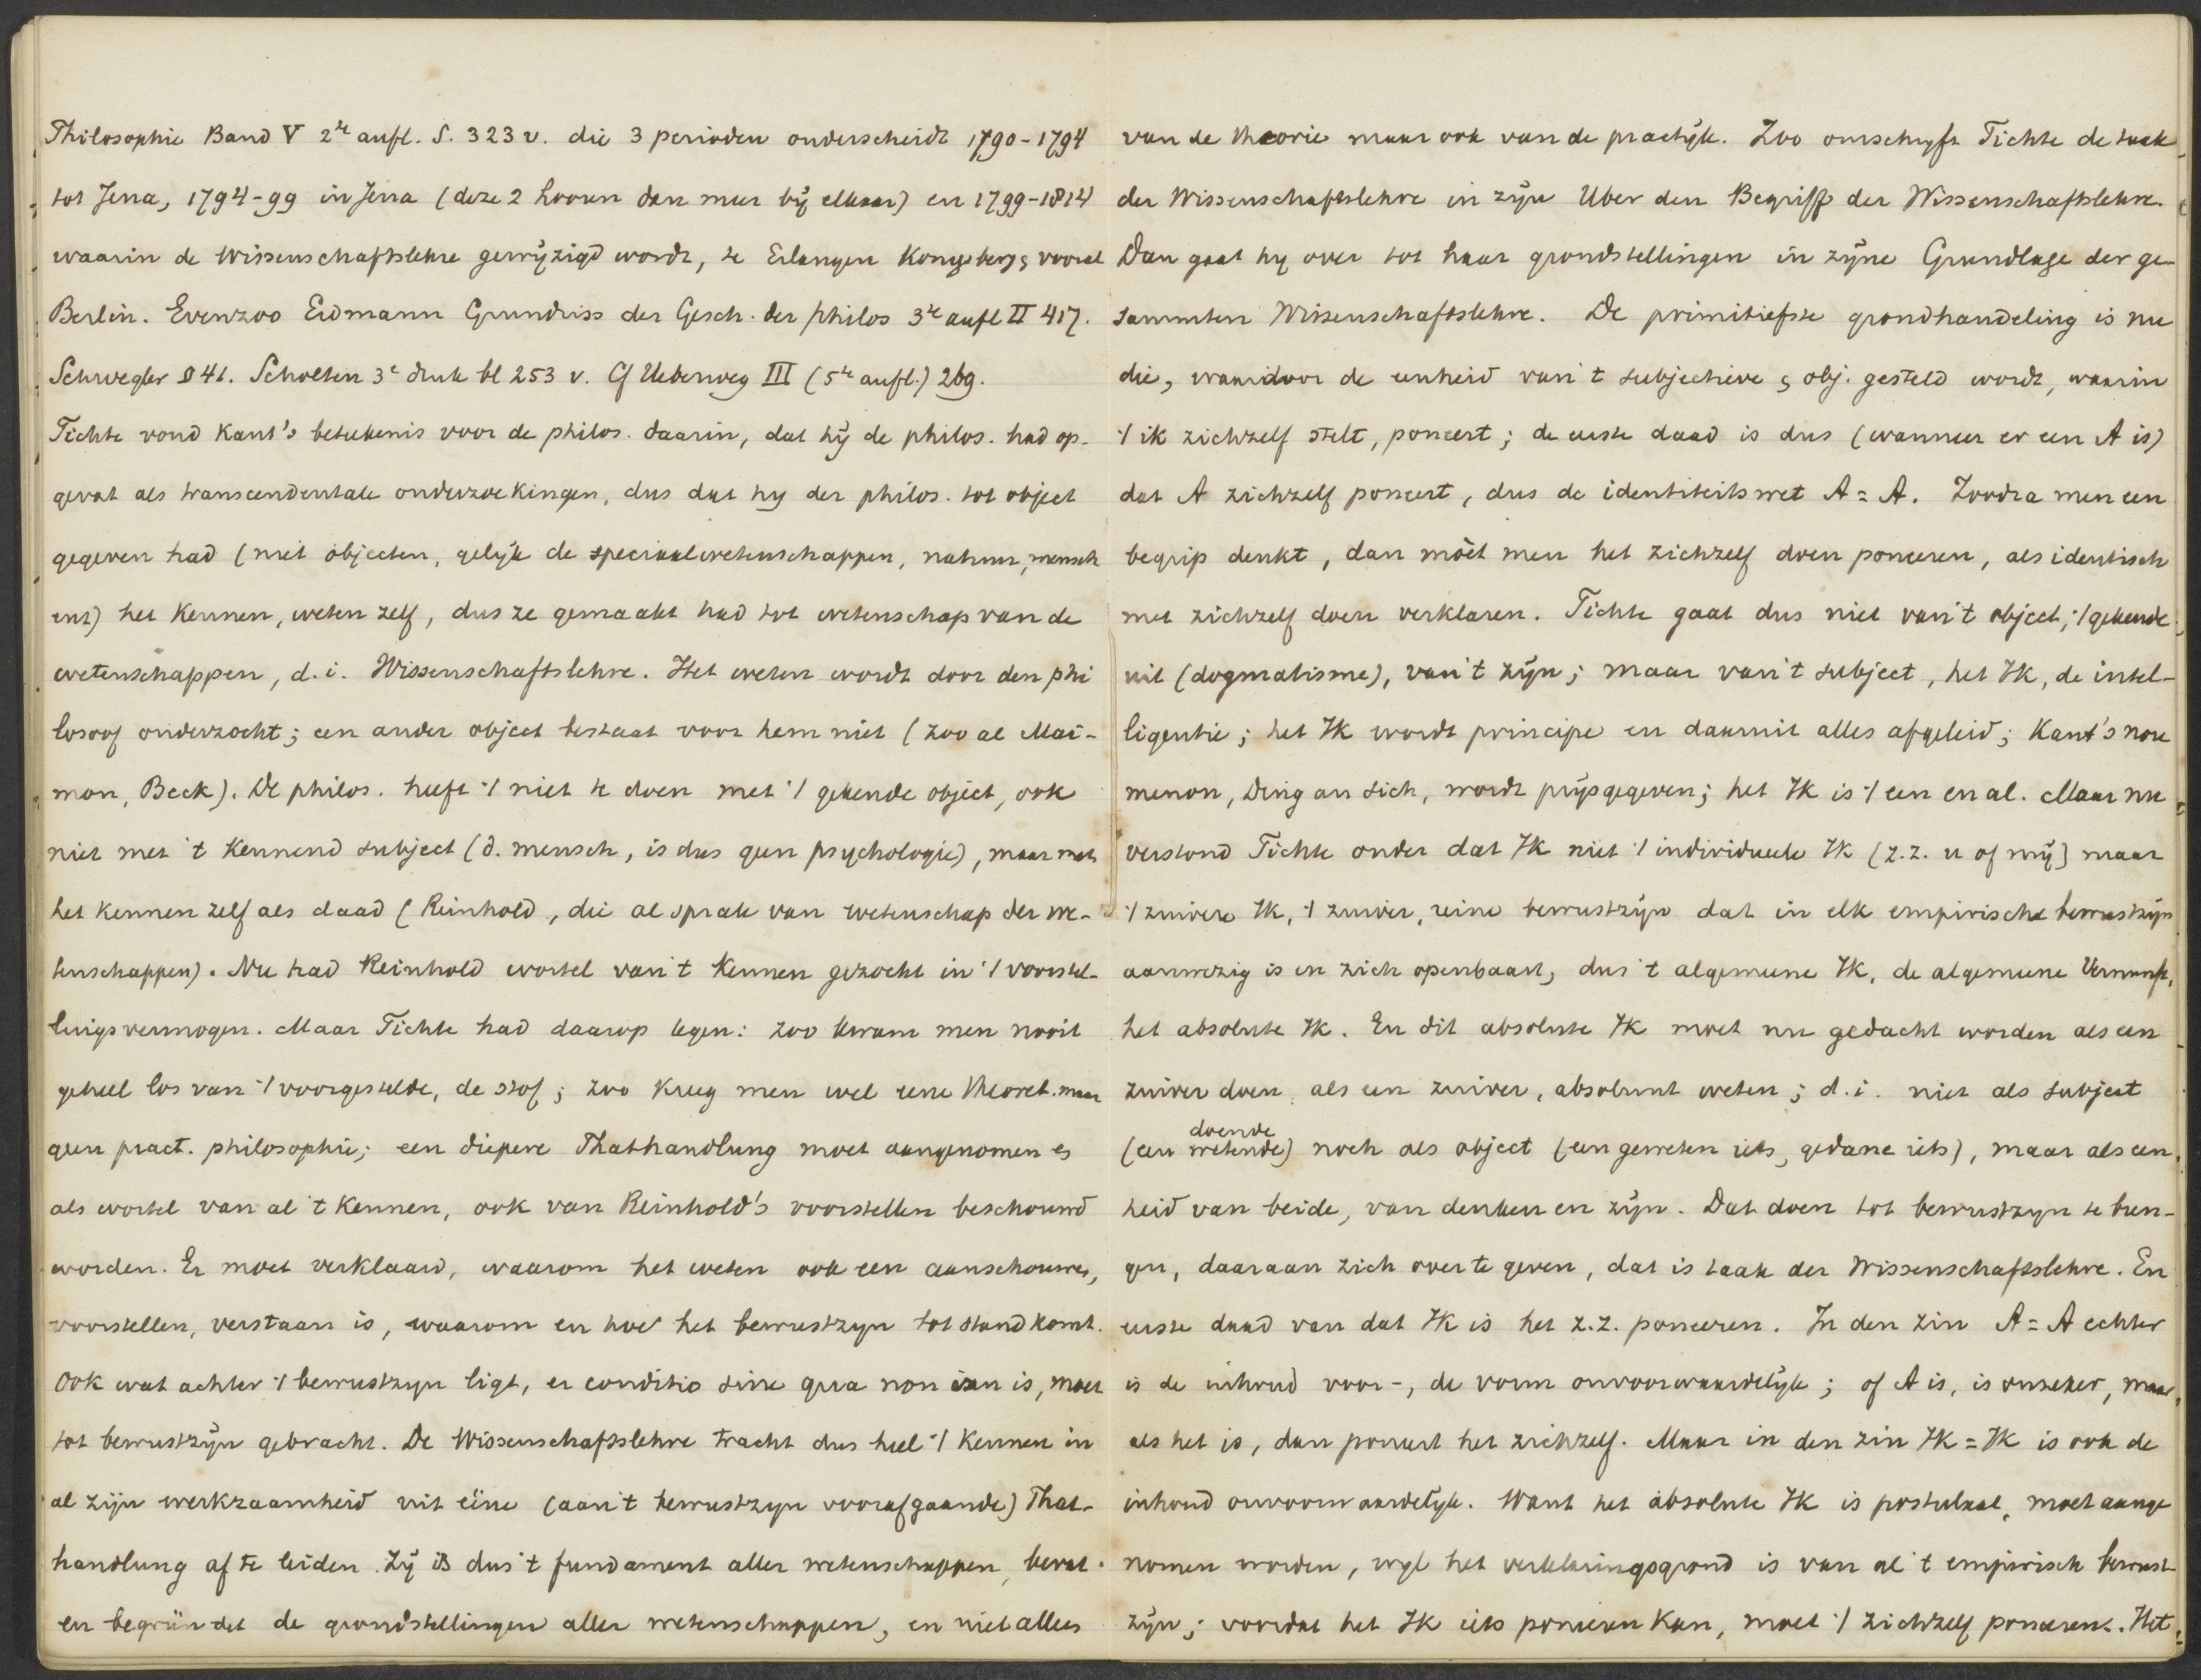 Philosophie Band V 2te aufl. S. 323 v. die 3 perioden onderscheidt 1790-1794
tot Jena, 1794-99 in Jena (deze 2 hooren dan meer bij elkaar) en 1799-1814
waarin de Wissenschaftslehre gewijzigd wordt, te Erlangen Kongsberg & vooral
Berlin. Evenzoo Erdmann Grundriss der Gesch. der philos 3te aufl II 417.
Schwegler § 41. Scholten 3e druk bl 253 v. Cf Ueberweg III (5te aufl.) 269.
Fichte vond Kant's beteekenis voor de philos. daarin, dat hij de philos. had op-
gevat als transcendentale onderzoekingen, dus dat hy der philos. tot object
gegeven had (niet objecten, gelijk de speciaalwetenschappen, natuur, mensch
enz) het kennen, weten zelf, dus ze gemaakt had tot wetenschap van de
wetenschappen, d.i. Wissenschaftslehre. Het weten wordt door den phi
losoof onderzocht; een ander object bestaat voor hem niet (zoo al Mai-
mon, Beck). De philos. heeft 't niet te doen met 't gekende object, ook
niet met 't kennend subject (d. mensch, is dus geen psychologie), maar met
het kennen zelf als daad (Reinhold, die al sprak van wetenschap der we-
tenschappen). Nu had Reinhold wortel van 't kennen gezocht in 't voorstel-
lingsvermogen. Maar Fichte had daarop tegen: zoo kwam men nooit
geheel los van 't voorgestelde, de stof; zoo kreeg men wel eene theoret. maar
geen pract. philosophie; een diepere Thathandlung moet aangenomen es
als wortel van al 't kennen, ook van Reinhold's voorstellen beschouwd
worden. Er moet verklaard, waarom het weten ook een aanschouwen,
voorstellen, verstaan is, waarom en hoe het bewustzyn tot stand komt.
Ook wat achter 't bewustzyn ligt, er conditio sine qua non van is, moet
tot bewustzijn gebracht. De Wissenschaftslehre tracht dus heel 't kennen in
al zijn werkzaamheid uit eéne (aan 't bewustzyn voorafgaande) That-
handlung af te leiden. Zij is dus 't fundament aller wetenschappen, bevat
en begründet de grondstellingen aller wetenschappen, en niet alleen
van de theorie maar ook van de practijk. Zoo omschryft Fichte de taak
der Wissenschaftslehre in zijn Uber den Begriff der Wissenschaftslehre.
Dan gaat hy over tot haar grondstellingen in zijne Grundlage der ge-
sammten Wissenschaftslehre. De primitiefste grondhandeling is nu
die, waardoor de eenheid van 't subjectieve & obj. gesteld wordt, waarin
't ik zichzelf stelt, poneert; de eerste daad is dus (wanneer er een A is)
dat A zichzelf poneert, dus de identiteitswet A = A. Zoodra men een
begrip denkt, dan móét men het zichzelf doen poneeren, als identisch
met zichzelf doen verklaren. Fichte gaat dus niet van 't object, 't gekende
uit (dogmatisme), van 't zijn; maar van 't subject, het Ik, de intel-
ligentie; het Ik wordt principe en daaruit alles afgeleid; Kant's nou
menon, Ding an sich, wordt prijsgegeven; het Ik is 't een en al. Maar nu
verstond Fichte onder dat Ik niet 't individueele Ik (z.z. u of mij) maar
't zuivere Ik, 't zuiver, reine bewustzijn dat in elk empirische bewustzijn
aanwezig is en zich openbaart, dus 't algemeene Ik, de algemeene Vernunft,
het absolute Ik. En dit absolute Ik moet nu gedacht worden als een
zuiver doen, als een zuiver, absoluut weten; d.i. niet als subject
(een doende wetende) noch als object (een geweten iets, gedane iets), maar als een
heid van beide, van denken en zijn. Dat doen tot bewustzyn te bren-
gen, daaraan zich over te geven, dat is taak der Wissenschaftslehre. En
eerste daad van dat Ik is het z.z. poneeren. In den zin A = A echter
is de inhoud voor-, de vorm onvoorwaardelijk; of A is, is onzeker, maar
als het is, dan poneert het zichzelf. Maar in den zin Ik = Ik is ook de
inhoud onvoorwaardelijk. Want het absolute Ik is postulaat, moet aange
nomen worden, wyl het verklaringsgrond is van al 't empirisch bewust-
zijn; voordat het Ik iets poneeren kan, moet 't zichzelf poneeren. Het